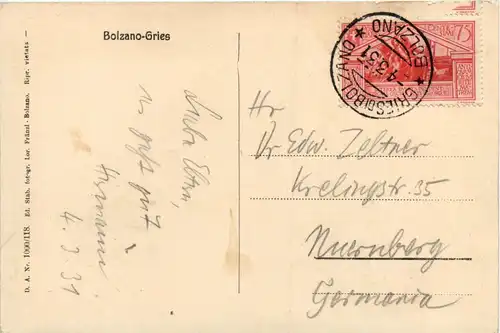 Bolzano-Gries
D. A. Nr. 1000/118. Ed. Stab. fotogr. Leo Fränzl - Bolzano. Ripr. vietata —
Liebe Eltern,
es geht gut
Hermann
4.3.31
GRIES DI BOLZANO
BOLZANO
4.3.31
75
Hr
Dr Edw. Zeltner
Krelingstr. 35
Nuernberg
Germania